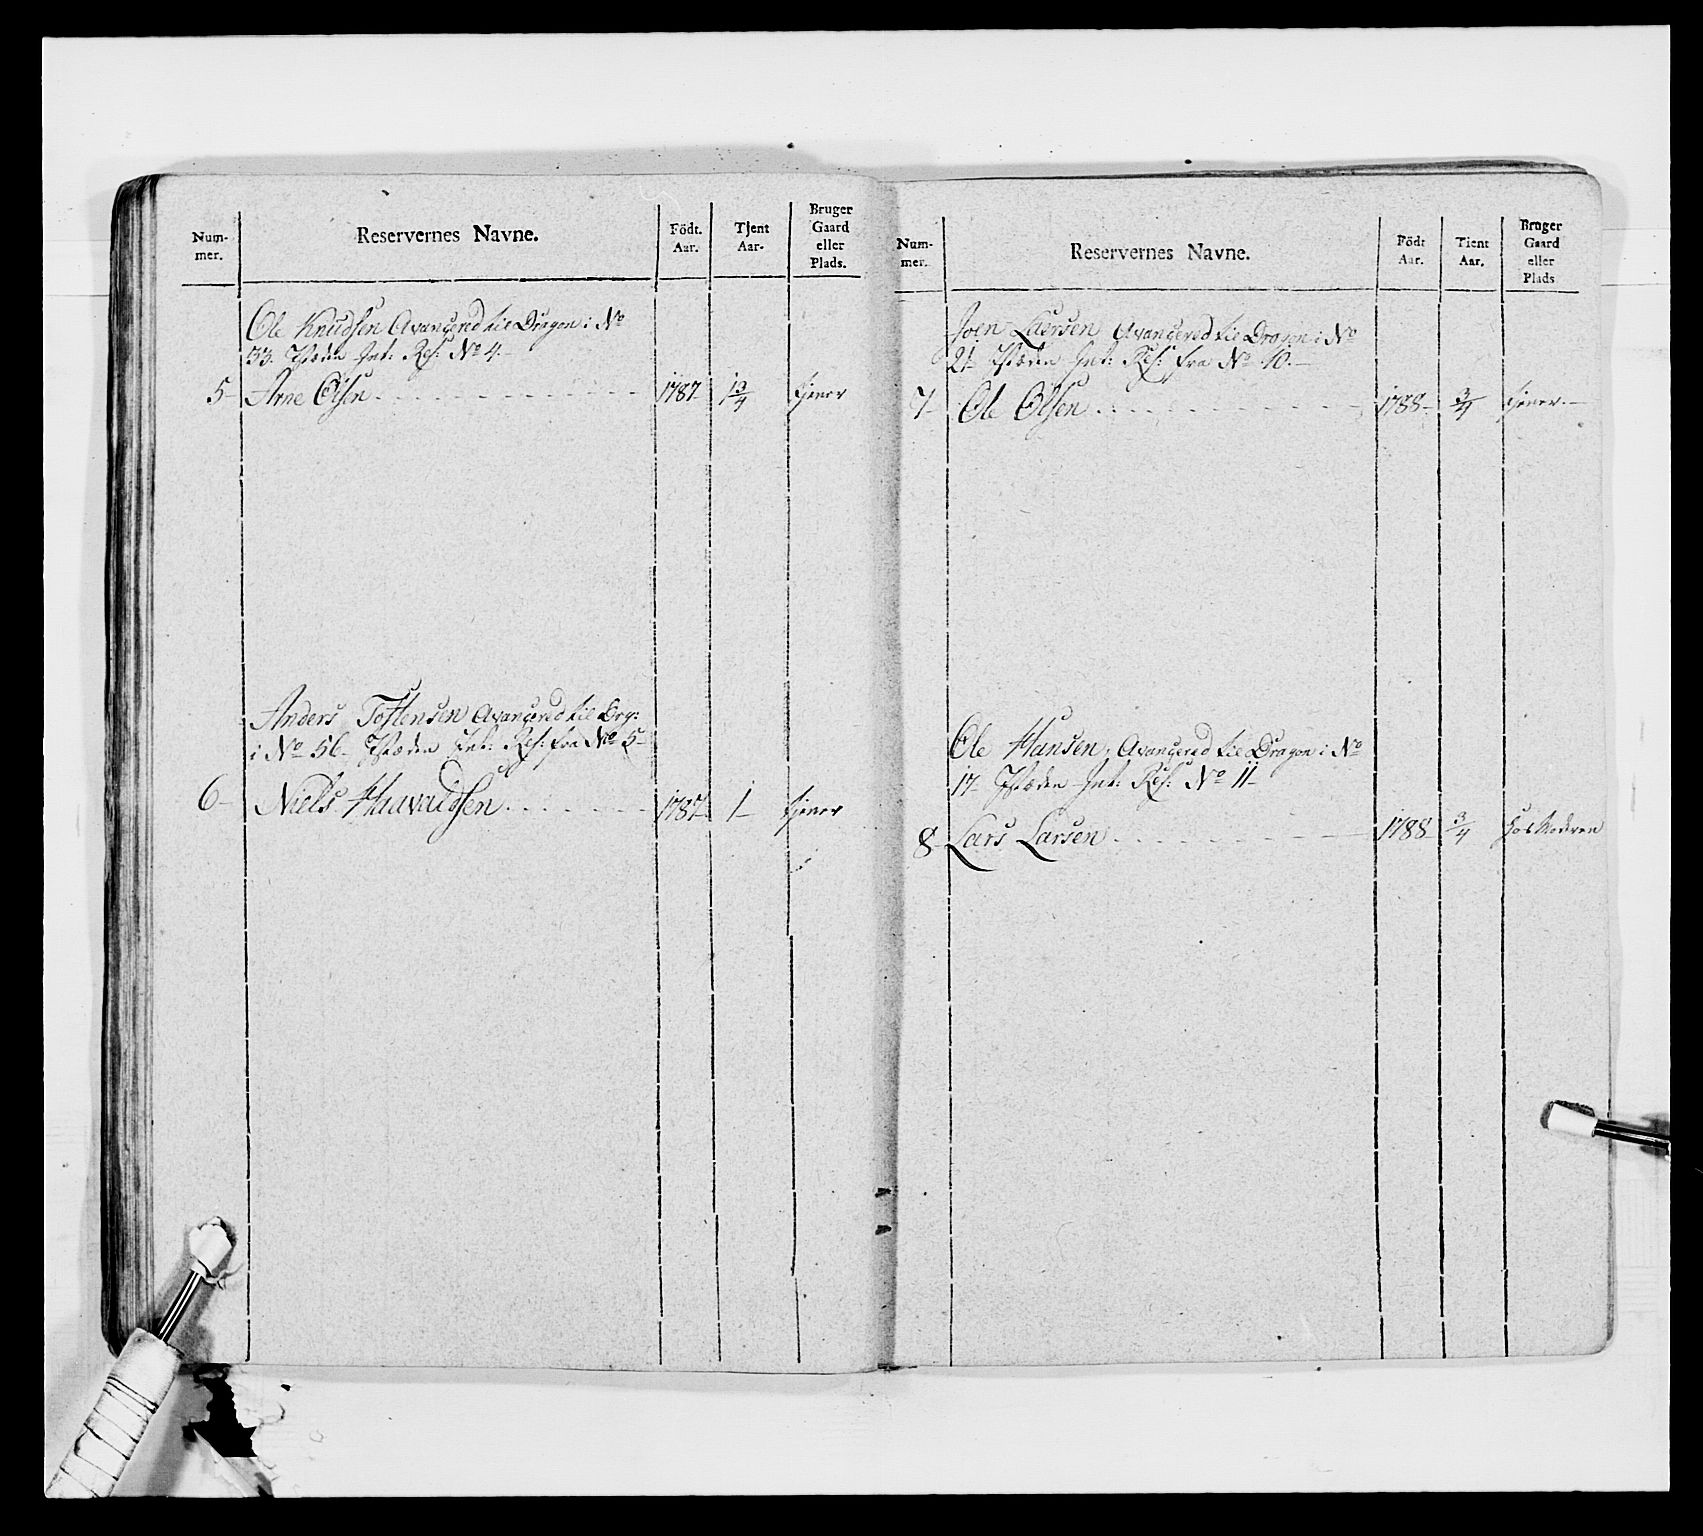 Num-
mer.
Reservernes Navne.
Födt.
Aar.
Tjent
Aar.
Bruger
Gaard
eller
Plads.
Ole Knudsen Avangered til Dragon i No
33. Isteden Int: Res: No 4.
5 Arne Olsen 1787 1 3/4 tjener
Anders Tostensen Avangered til Drg:
i No 56 Isteden Int: Res: fra No 5
6 Niels Haavaldsen 1787 1 tjener
Num-
mer.
Reservernes Navne.
Födt
Aar.
Tient
Aar.
Bruger
Gaard
eller
Plads
Joen Laersen Avangered til Dragon i No
21 Isteden Int: Res: fra No 10.
7 Ole Olsen 1788 3/4 tjener
Ole Hansen, Avangered til Dragon i No
17 Isteden Int: Res: No 11
8 Lars Larsen 1788 3/4 hos Moderen